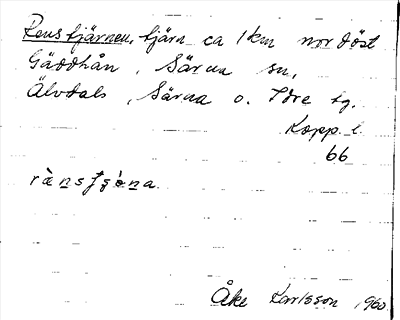 Renstjärnen, tjärn ca 1 km nordöst
Gäddtjån, Särna sn,
Älvdals, Särna o. Idre tg.
Kopp. l.
66
Åke Karlsson 1960